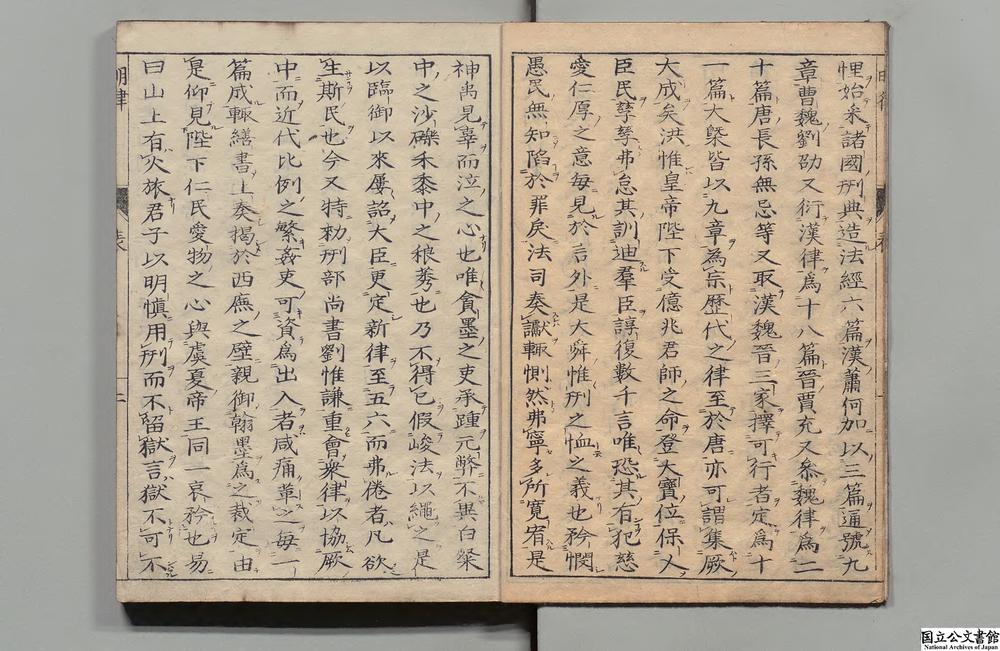 悝始采諸國刑典造法經六篇漢蕭何加以三篇通號九
章曹魏劉劭又衍漢律爲十八篇晉賈充又叅魏律爲二
十篇唐長孫無忌等又取漢魏晉三家擇可行者定爲十
一篇大槩皆以九章為宗歷代之律至於唐亦可謂集厥
大成矣洪惟皇帝陛下受億兆君師之命登大寶位保乂
臣民孳孳弗怠其訓迪羣臣諄復數千言唯恐其有犯慈
愛仁厚之意每見於言外是大舜惟刑之恤之義也矜憫
愚民無知陷於罪戾法司奏讞輒惻然弗寧多所寬宥是
神禹見辜而泣之心也唯貪墨之吏承踵元弊不異白粲
中之沙礫禾黍中之稂莠也乃不得已假峻法以繩之是
以臨御以來屢詔大臣更定新律至五六而弗倦者凡欲
生斯民也今又特勑刑部尚書劉惟謙重會衆律以協厥
中而近代比例之繁姦吏可資爲出入者咸痛革之每一
篇成輒繕書上奏揭於西廡之壁親御翰墨爲之裁定由
是仰見陛下仁民愛物之心與虞夏帝王同一哀矜也易
曰山上有火旅君子以明愼用刑而不留獄言獄不可不
明律
表
二
国立公文書館
National Archives of Japan